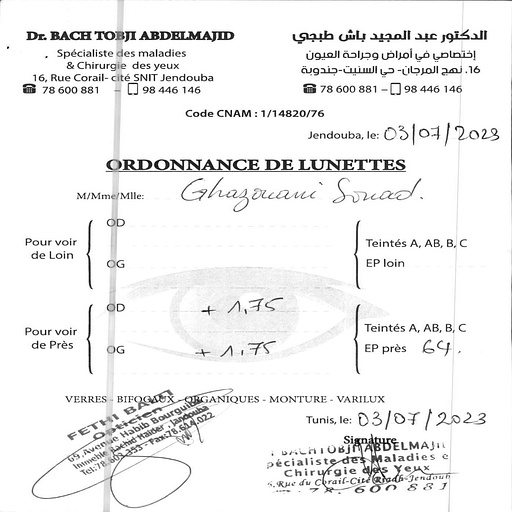 Dr. BACH TOBJI ABDELMAJID
Spécialiste des maladies
& Chirurgie des yeux
16, Rue Corail- cité SNIT Jendouba
☎ 78 600 881 – 98 446 146
الدكتور عبد المجيد باش طبجي
إختصاصي في أمراض وجراحة العيون
16، نهج المرجان- حي السنيت-جندوبة
☎ 78 600 881 – 98 446 146
Code CNAM : 1/14820/76
Jendouba, le: 03/07/2023
ORDONNANCE DE LUNETTES
M/Mme/Mlle: Ghazouani Souad.
Pour voir de Loin
OD
OG
Teintés A, AB, B, C
EP loin
Pour voir de Près
OD + 1,75
OG + 1,75
Teintés A, AB, B, C
EP près 64.
VERRES - BIFOCAUX - ORGANIQUES - MONTURE - VARILUX
Tunis, le: 03/07/2023
Signature
FETHI
Opticien
69, Avenue Habib Bourguiba
Immeuble Rachid Haider, Jendouba
BACH TOBJI ABDELMAJI
pécialiste des Maladies e
Chirurgie des Yeux
Rue du Corail-Cité Riadh-Jendoub
78. 600 881